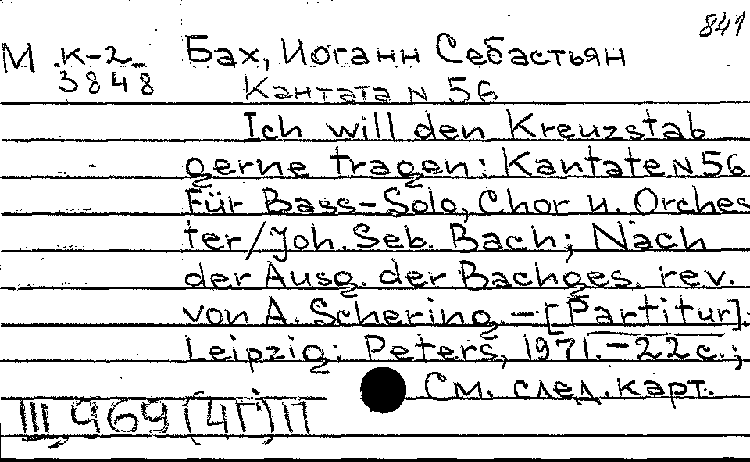 841
М К-2 Бах, Иоганн Себастьян
3848
Кантата N 56
Ich will den Kreuzstab
gerne tragen: Kantate N 56
Für Bass-Solo, Chor u. Orches
ter/Joh. Seb. Bach; Nach
der Ausg. der Bachges. rev.
von A. Schering. - [Partitur].
Leipzig: Peters, 1971. - 22 c.;
См. след. карт.
III, 969 (4Г) П